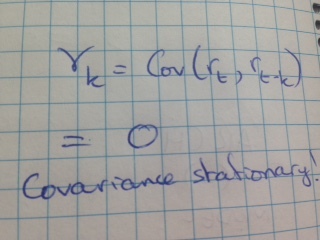 γₖ = Cov(rₜ, rₜ₋ₖ)
= 0
Covariance stationary!